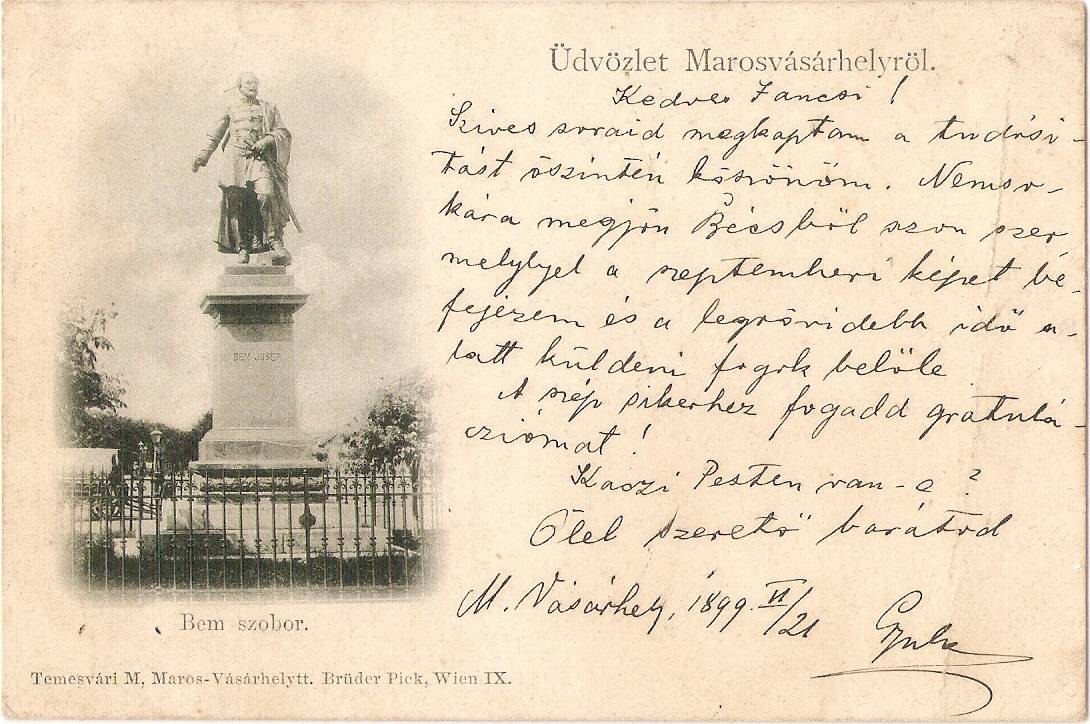 Üdvözlet Marosvásárhelyröl.
Kedves Jancsi!
Szives soraid megkaptam a tudósi-
tást őszintén köszönöm. Nemso-
kára megjön Bécsből azon szer
melylyel a szeptemberi képet bé-
fejezem és a legrövidebb idő a-
latt küldeni fogok belöle
A szép sikerhez fogadd gratulá-
cziómat!
Kaszi Pesten van-e?
Ölel szerető barátod
M. Vásárhely, 1899 VI/21
Gyula
BEM JOSEF
Bem szobor.
Temesvári M, Maros-Vásárhelytt. Brüder Pick, Wien IX.